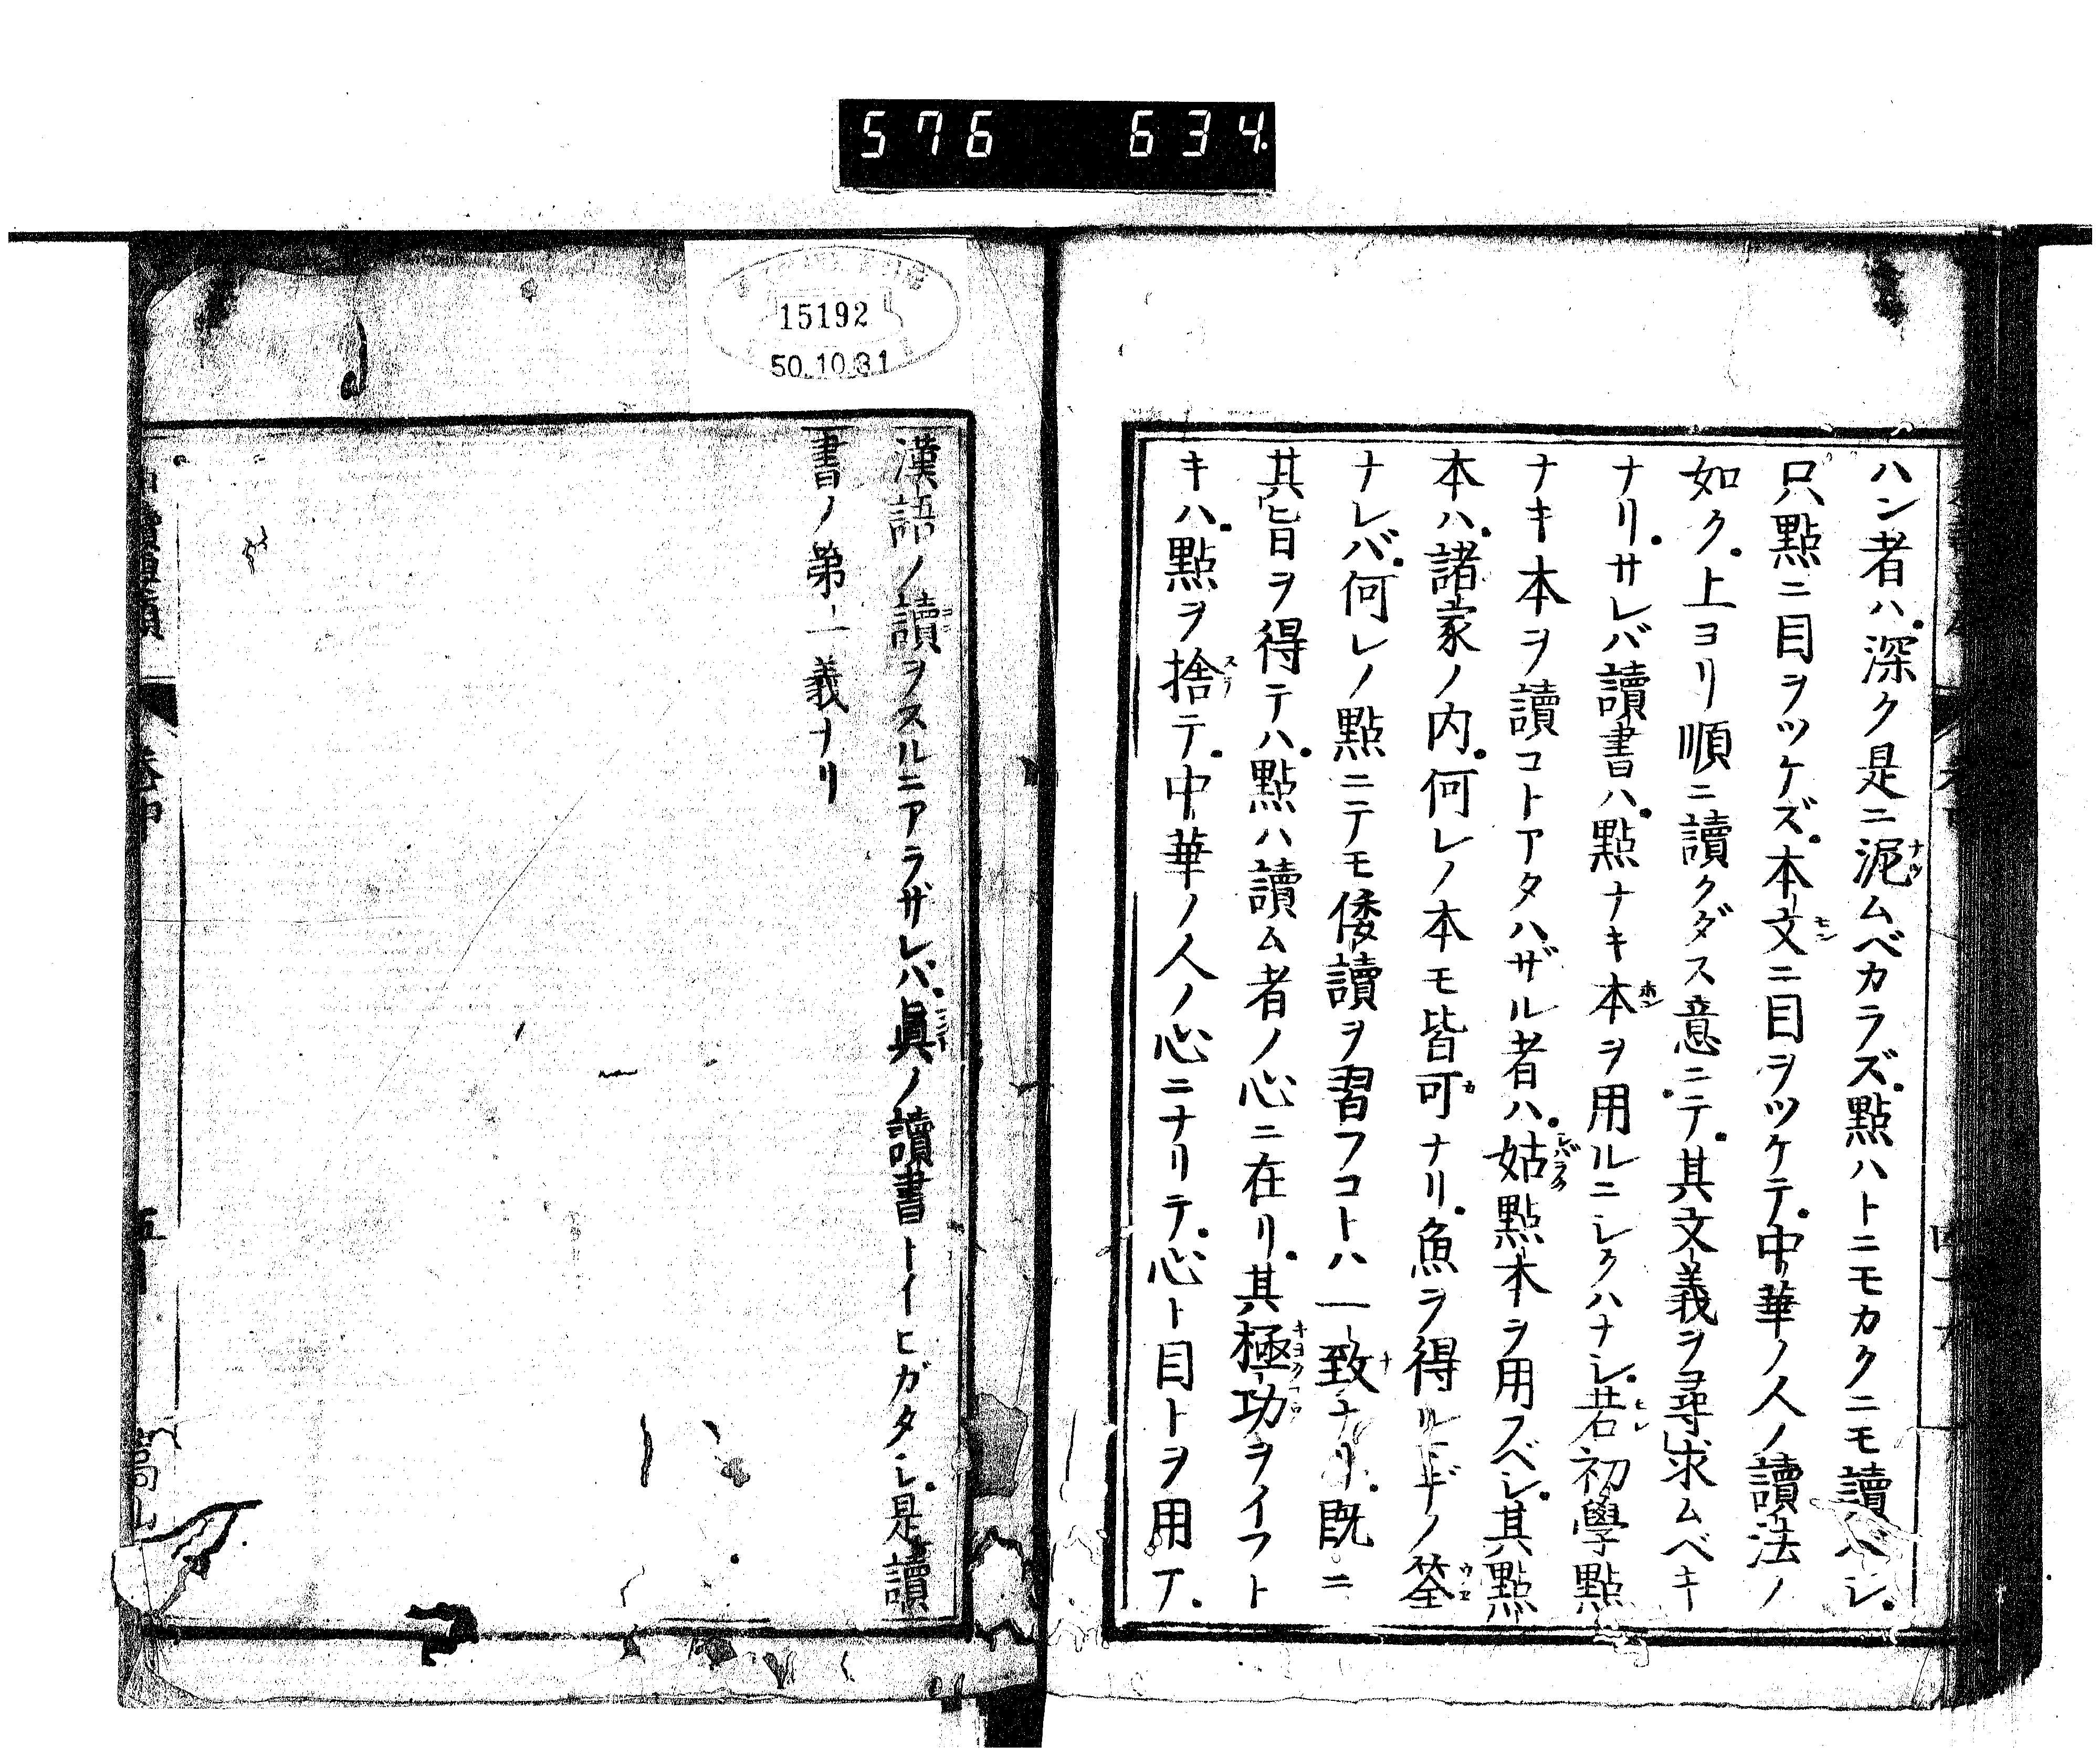 576 634
ハン者ハ深ク是ニ泥ムベカラズ點ハトニモカクニモ讀ベシ
只點ニ目ヲツケズ本文ニ目ヲツケテ中華ノ人ノ讀法ノ
如ク上ヨリ順ニ讀クダス意ニテ其文義ヲ尋求ムベキ
ナリサレバ讀書ハ點ナキ本ヲ用ルニシクハナシ若初學點
ナキ本ヲ讀コトアタハザル者ハ姑點本ヲ用フベシ其點
本ハ諸家ノ内何レノ本モ皆可ナリ魚ヲ得ルトキノ筌
ナレバ何レノ點ニテモ倭讀ヲ習フコトハ一致ナリ既ニ
其旨ヲ得テハ點ハ讀ム者ノ心ニ在リ其極功ヲイフト
キハ點ヲ捨テ中華ノ人ノ心ニナリテ心ト目トヲ用テ
15192
50.10.31
漢語ノ讀ヲスルニアラザレバ眞ノ讀書トイヒガタシ是讀
書ノ第一義ナリ